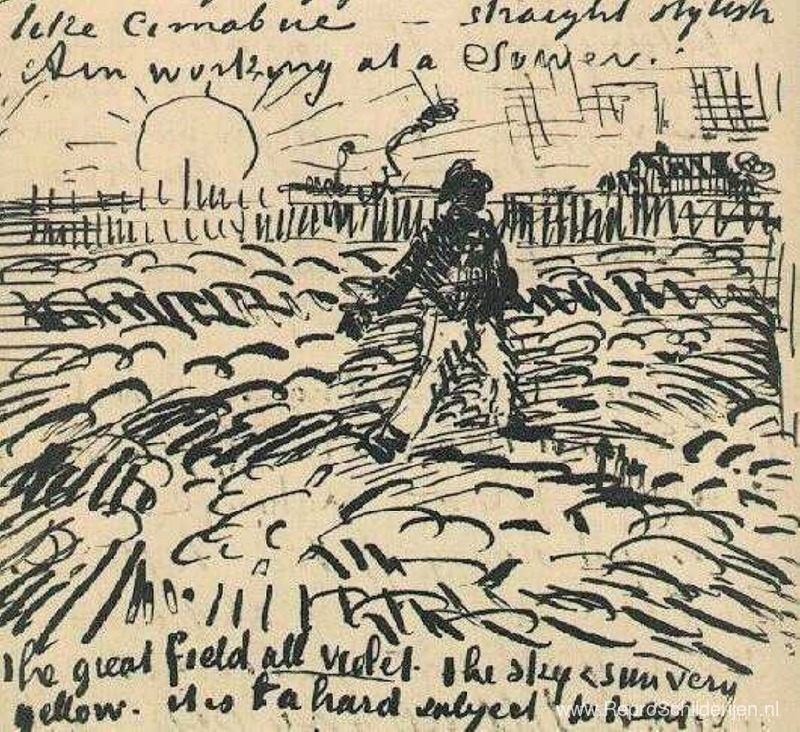 like Cimabue — straight stylish
Am working at a Sower.
the great field all violet. the sky & sun very
yellow. it is a hard subject to treat.
www.ReproSchilderijen.nl